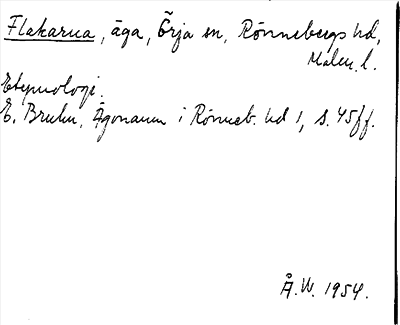 Flakarna, äga, Örja sn, Rönnebergs hd,
Malm. l.
Etymologi.
E. Bruhn, Ägonamn i Rönneb. hd 1, s. 45 ff.
Å.W. 1954.